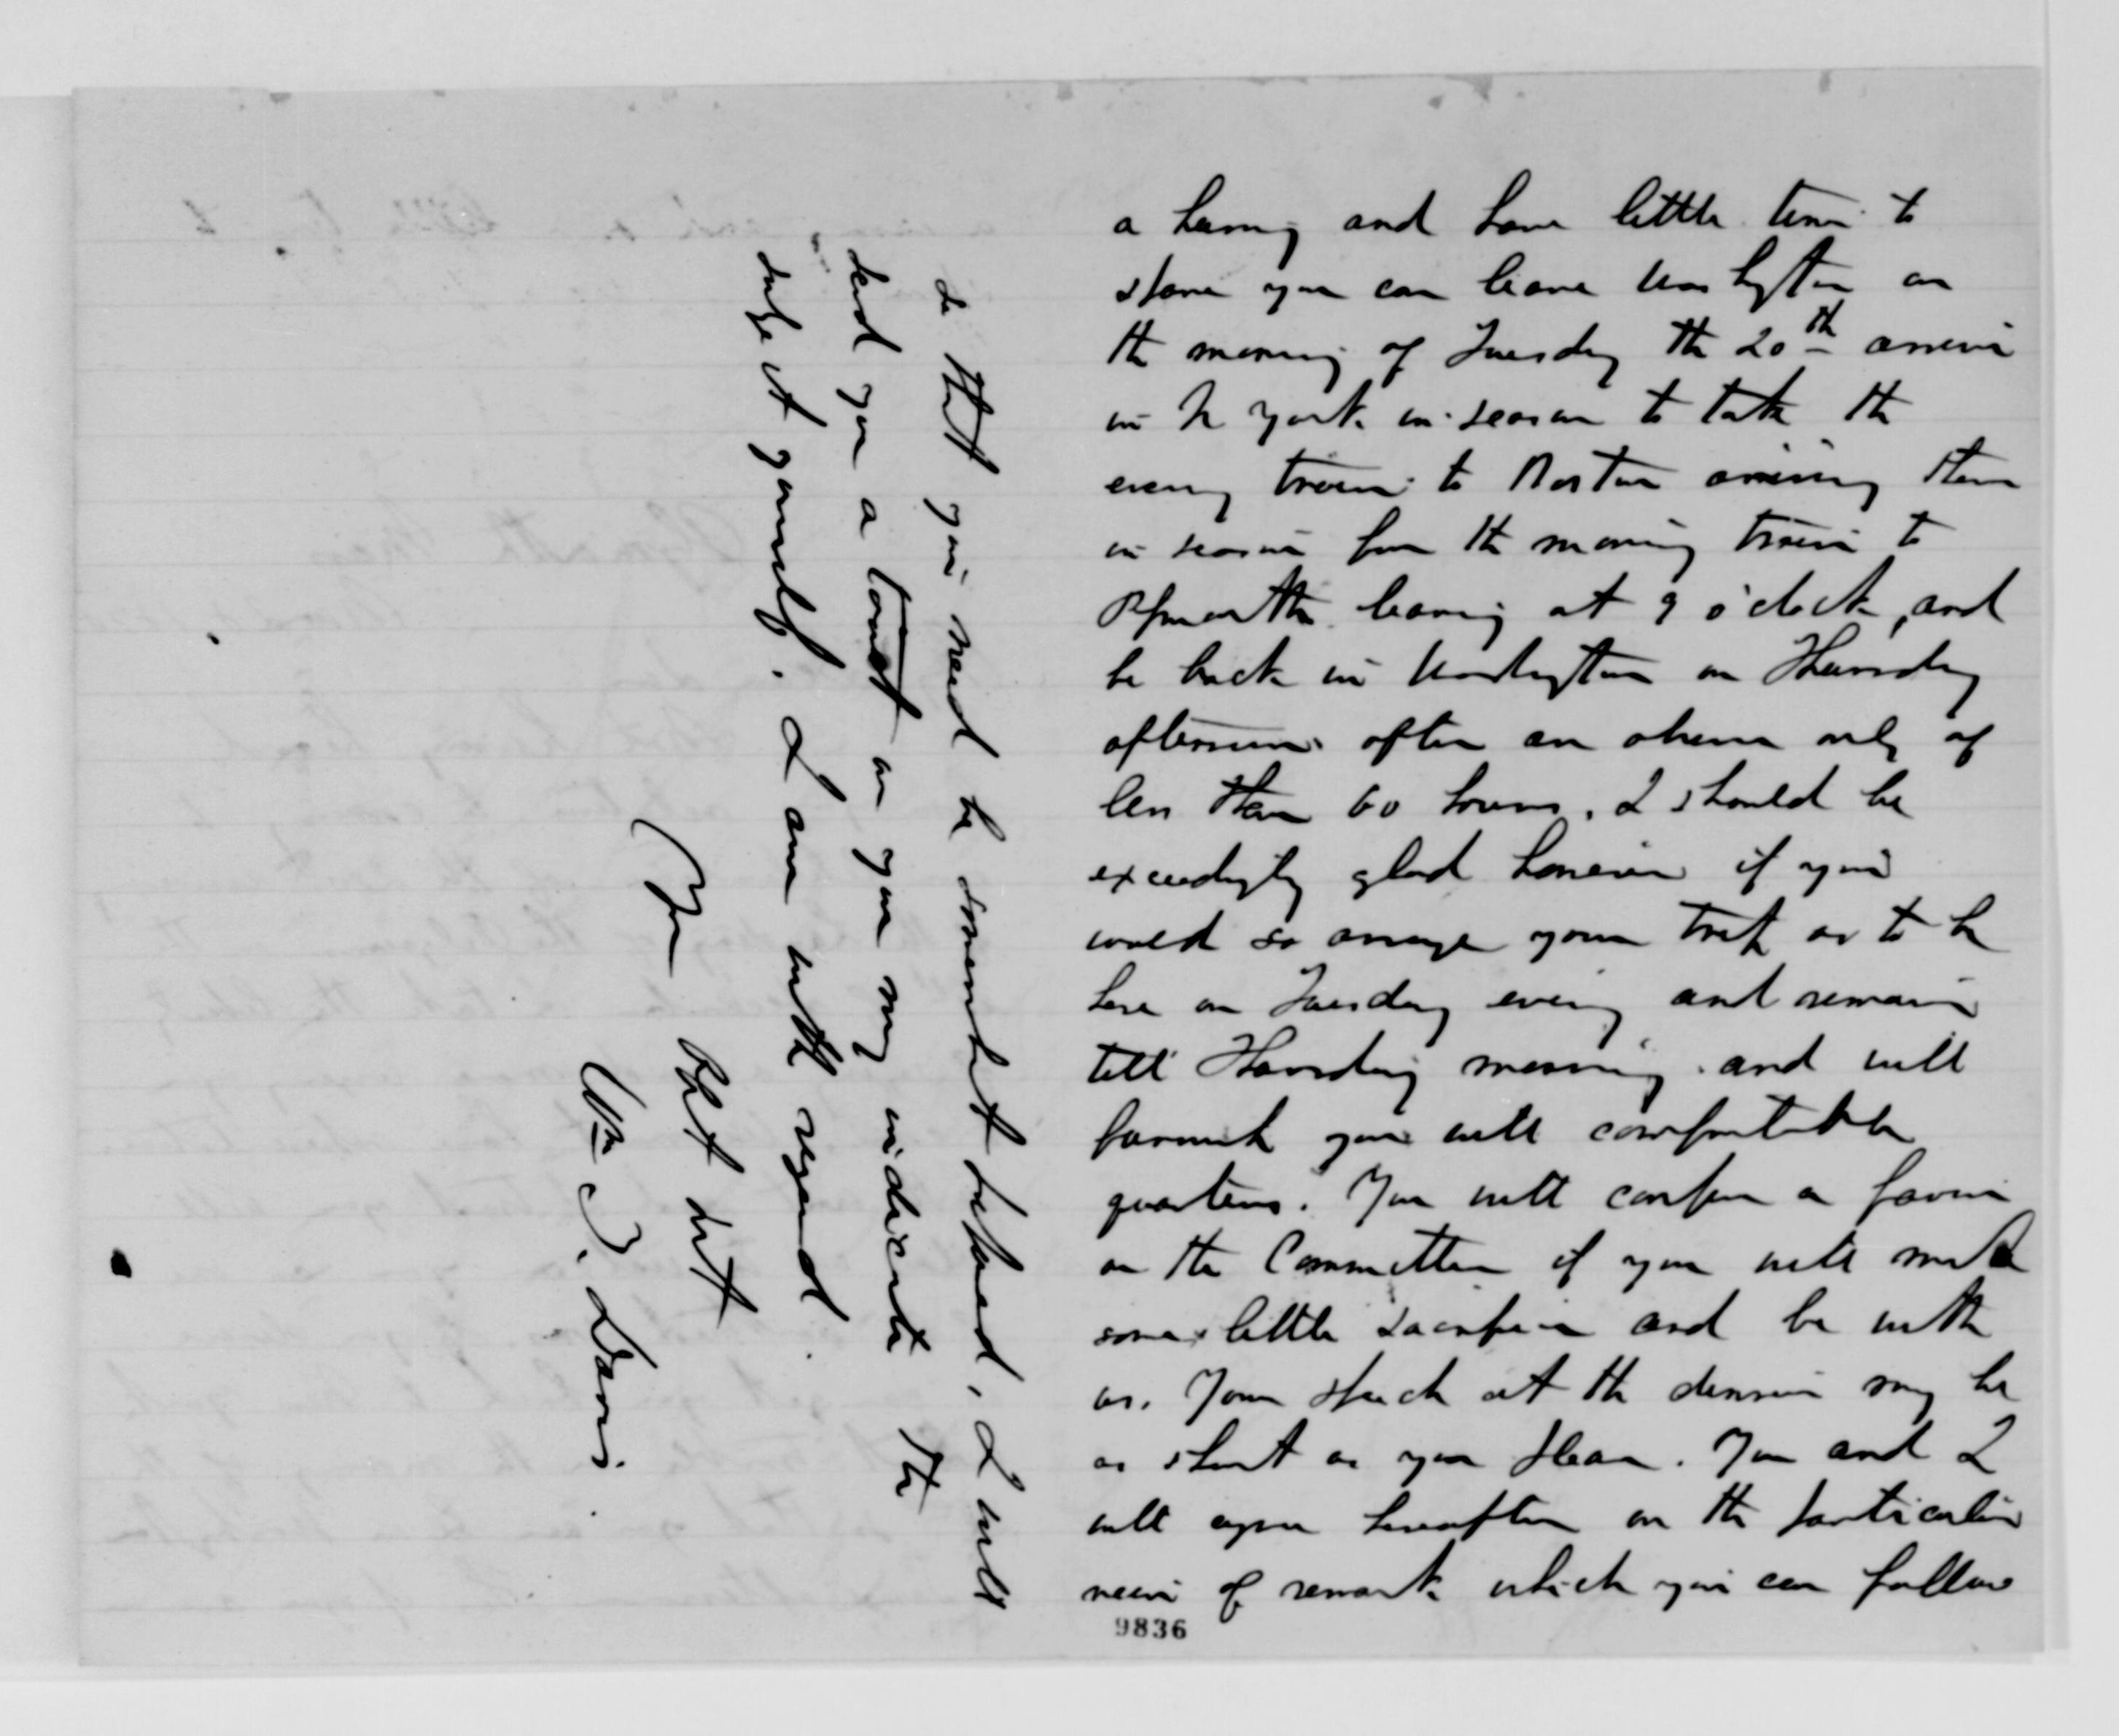 a hurry and have little time to
spare you can leave Washington on
the morning of Tuesday the 20th arrive
in N York in season to take the
evening train to Boston arriving there
in season for the morning train to
Plymouth leaving at 9 o'clock, and
be back in Washington on Thursday
afternoon after an absence only of
less than 60 hours. I should be
exceedingly glad however if you
would so arrange your trip as to be
here on Tuesday evening and remain
till Thursday morning and will
furnish you with comfortable
quarters. You will confer a favor
on the Committee if you will make
some little sacrifice and be with
us. Your speech at the dinner may be
as short as you please. You and I
will agree hereafter on the particular
vein of remark which you can follow
9836
so that you need be somewhat prepared. I will
send you a toast or you may indicate the
subject yourself. I am with regard
Your obt svt
Wm T. Davis.